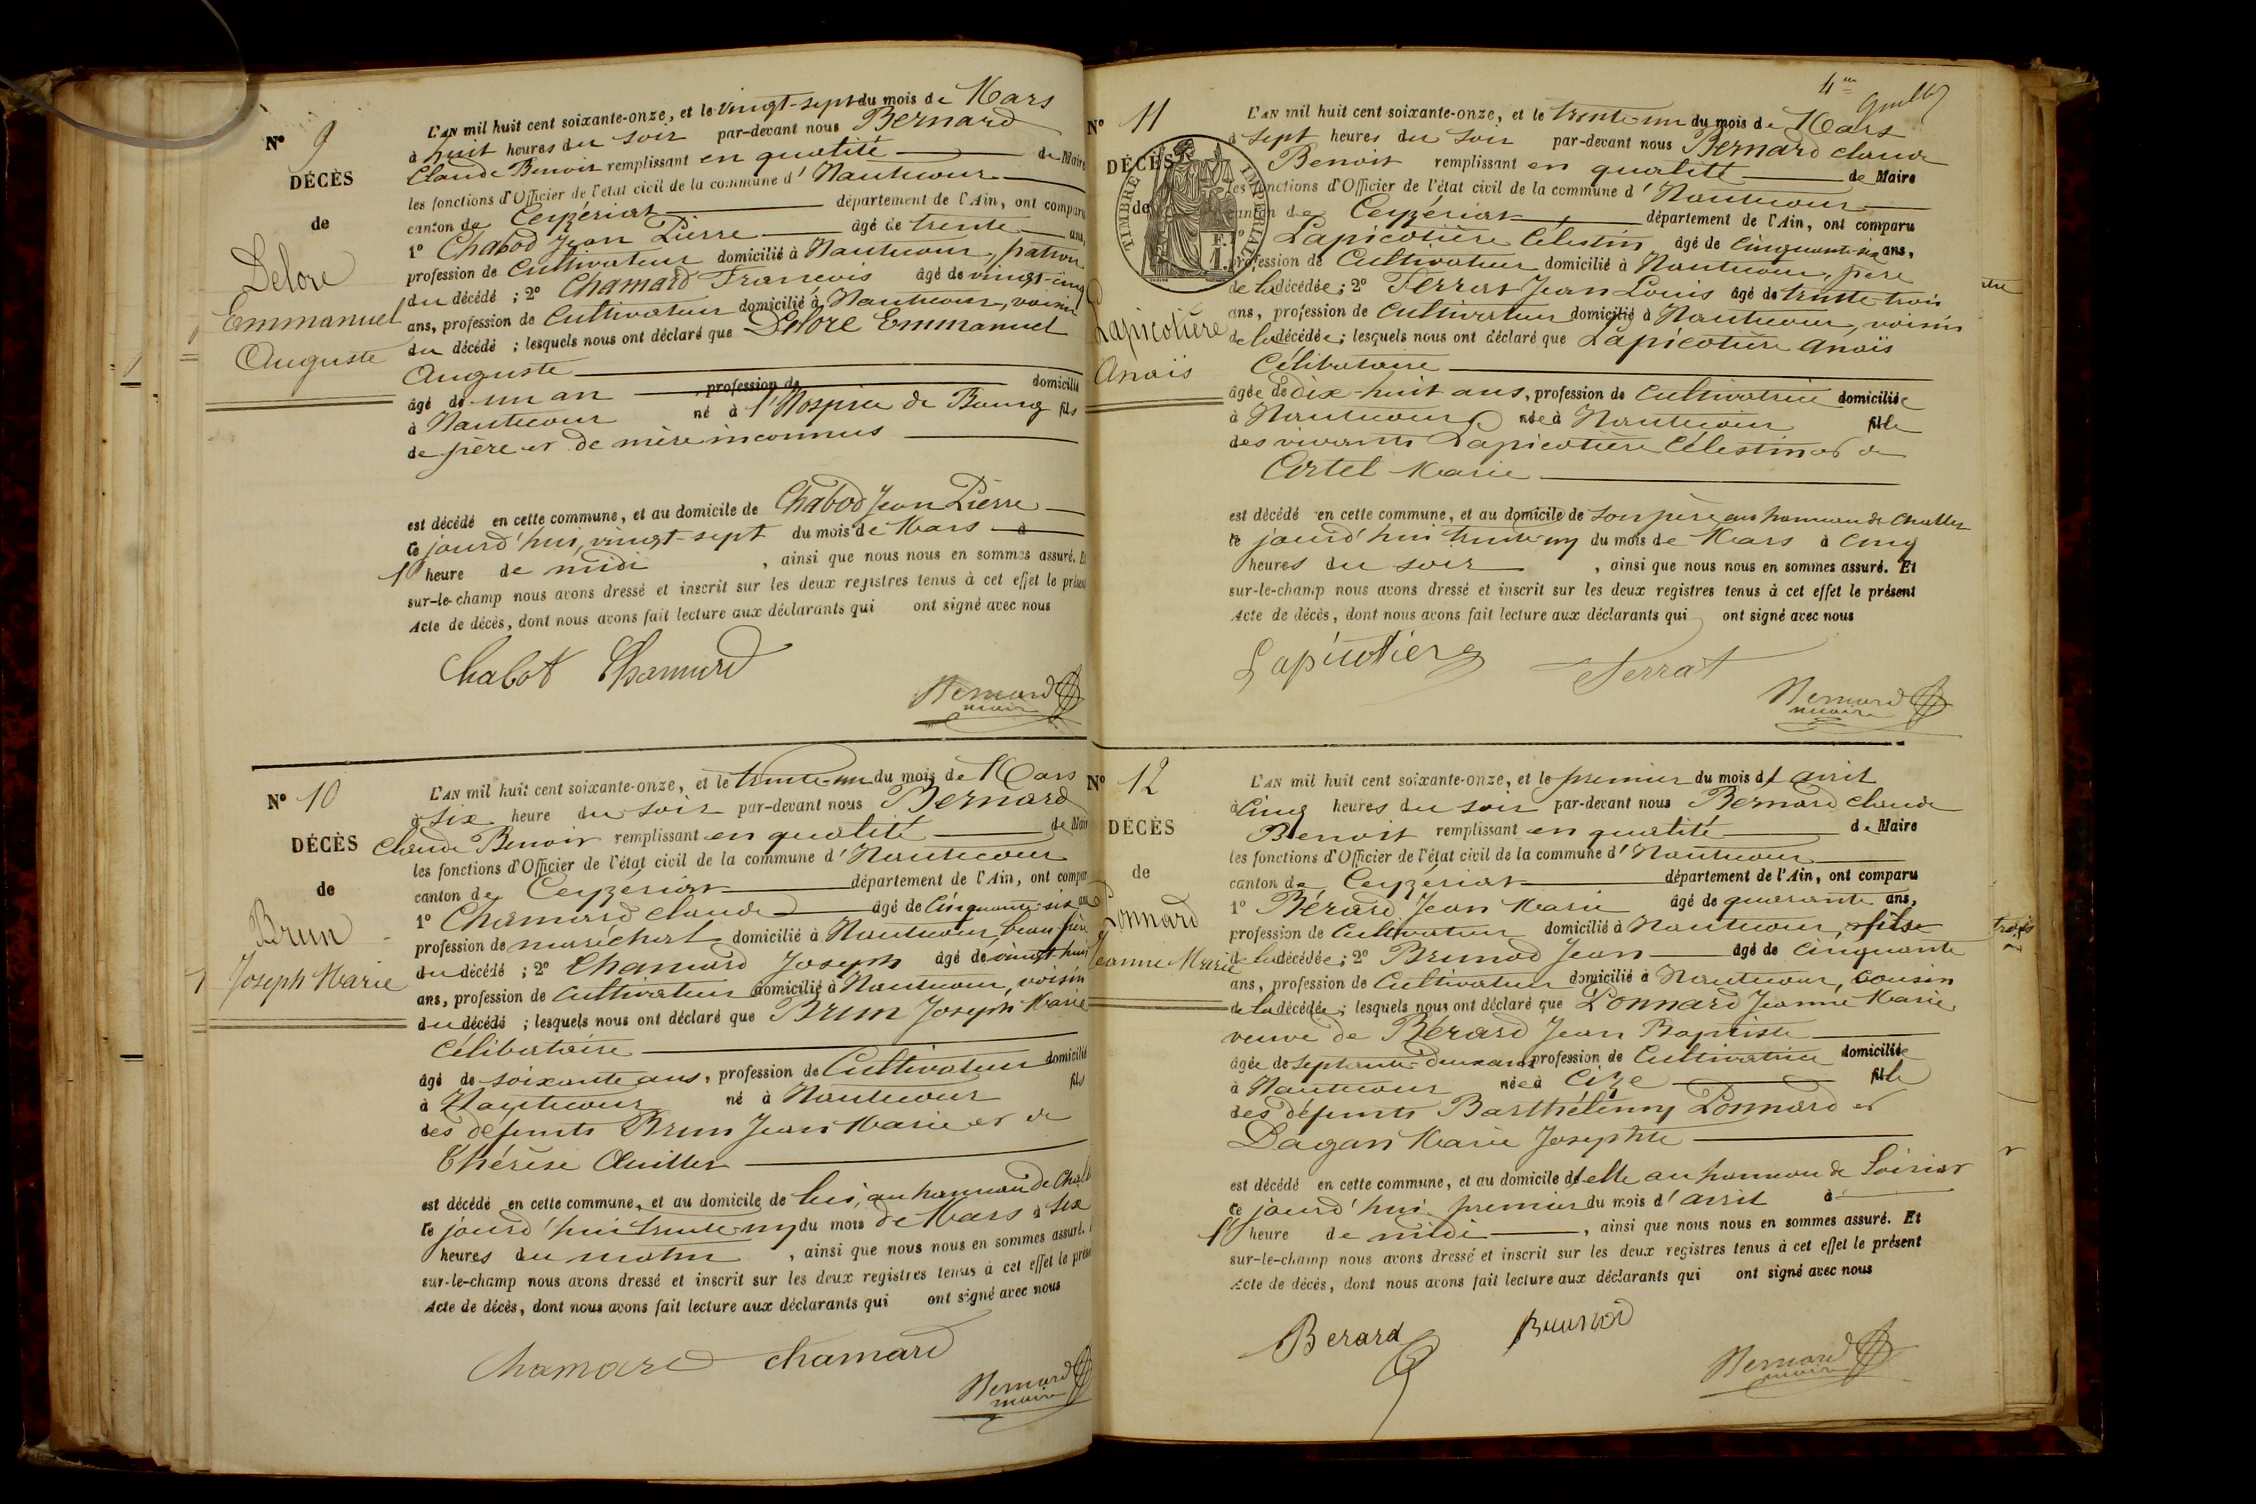 Nº 9
DÉCÈS
de
Delore
Emmanuel
Auguste
L'AN mil huit cent soixante-onze, et le vingt-sept du mois de Mars
à huit heures du soir par-devant nous Bernard
Claude Benoit remplissant en qualité de Maire
les fonctions d'Officier de l'état civil de la commune d'
canton de Ceyzériat département de l'Ain, ont comparu
1º Chabod Jean Pierre âgé de trente ans,
profession de Cultivateur domicilié à patron
du décédé ; 2º Chamard Francois âgé de vingt-cinq
ans, profession de Cultivateur domicilié à voisin
du décédé ; lesquels nous ont déclaré que Delore Emmanuel
Auguste
âgé de un an profession de domicilié
à né à l'Hospice de Bourg fils
de père et de mère inconnus
est décédé en cette commune, et au domicile de Chabod Jean Pierre
ce jourd'hui, vingt-sept du mois de Mars à
1 heure de midi , ainsi que nous nous en sommes assuré. Et
sur-le-champ nous avons dressé et inscrit sur les deux registres tenus à cet effet le présent
Acte de décès, dont nous avons fait lecture aux déclarants qui ont signé avec nous
Chabot Chamard
Bernard
maire
Nº 10
DÉCÈS
de
Brun
Joseph Marie
L'AN mil huit cent soixante-onze, et le trente-un du mois de Mars
à six heure du soir par-devant nous Bernard
Claude Benoit remplissant en qualité de Maire
les fonctions d'Officier de l'état civil de la commune d'
canton de Ceyzériat département de l'Ain, ont comparu
1º Chamard Claude âgé de Cinquante-six ans
profession de maréchal domicilié à beau-frère
du décédé ; 2º Chamard Joseph âgé de vingt-huit
ans, profession de Cultivateur domicilié à voisin
du décédé ; lesquels nous ont déclaré que Brun Joseph Marie
Célibataire
âgé de soixante ans, profession de Cultivateur domicilié
à né à fils
des défunts Brun Jean Marie et de
Thérèse
est décédé en cette commune, et au domicile de lui, au hameau de
ce jourd'hui trente-un du mois de Mars à six
heures du matin , ainsi que nous nous en sommes assuré.
sur-le-champ nous avons dressé et inscrit sur les deux registres tenus à cet effet le présent
Acte de décès, dont nous avons fait lecture aux déclarants qui ont signé avec nous
Chamard chamard
Bernard
maire
4me
Nº 11
DÉCÈS
de
Lapicotière
Anaïs
TIMBRE IMPÉRIAL
F.
1.
L'AN mil huit cent soixante-onze, et le trente-un du mois de Mars
à sept heures du soir par-devant nous Bernard Claude
Benoit remplissant en qualité de Maire
les fonctions d'Officier de l'état civil de la commune d'
canton de Ceyzériat département de l'Ain, ont comparu
1º Lapicotière Célestin âgé de Cinquante-six ans,
profession de Cultivateur domicilié à père
de la décédée ; 2º Ferrat Jean Louis âgé de trente-trois
ans, profession de Cultivateur domicilié à voisin
de la décédée ; lesquels nous ont déclaré que Lapicotière Anaïs
Célibataire
âgée de dix-huit ans, profession de Cultivatrice domiciliée
à née à fille
des vivants Lapicotière Célestin et de
Cortel Marie
est décédé en cette commune, et au domicile de son père au hameau de
ce jourd'hui trente-un du mois de Mars à Cinq
heures du soir , ainsi que nous nous en sommes assuré. Et
sur-le-champ nous avons dressé et inscrit sur les deux registres tenus à cet effet le présent
Acte de décès, dont nous avons fait lecture aux déclarants qui ont signé avec nous
Lapicotière Ferrat
Bernard
maire
Nº 12
DÉCÈS
de
Ponnard
Jeanne Marie
L'AN mil huit cent soixante-onze, et le premier du mois d'avril
à Cinq heures du soir par-devant nous Bernard Claude
Benoit remplissant en qualité de Maire
les fonctions d'Officier de l'état civil de la commune d'
canton de Ceyzériat département de l'Ain, ont comparu
1º Bérard Jean Marie âgé de quarante ans,
profession de Cultivateur domicilié à fils
de la décédée ; 2º Brunod Jean âgé de Cinquante
ans, profession de Cultivateur domicilié à cousin
de la décédée ; lesquels nous ont déclaré que Ponnard Jeanne Marie
veuve de Bérard Jean Baptiste
âgée de septante-deux ans profession de Cultivatrice domiciliée
à née à Cize fille
des défunts Barthélemy Ponnard et
Dagan Marie Josephte
est décédé en cette commune, et au domicile d'elle au hameau de
ce jourd'hui premier du mois d'avril à
1 heure de midi , ainsi que nous nous en sommes assuré. Et
sur-le-champ nous avons dressé et inscrit sur les deux registres tenus à cet effet le présent
Acte de décès, dont nous avons fait lecture aux déclarants qui ont signé avec nous
Berard Brunod
Bernard
maire